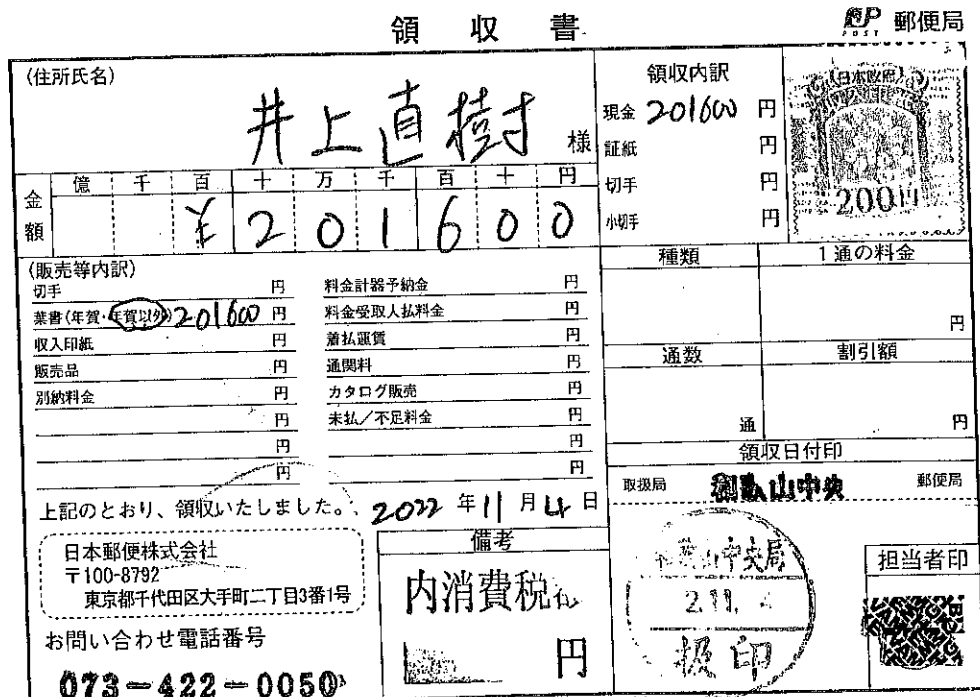 領収書
POST 郵便局
(住所氏名)
井上直樹 様
領収内訳
現金 201600 円
証紙 円
切手 円
小切手 円
日本政府
200円
金額
億 千 百 十 万 千 百 十 円
¥ 2 0 1 6 0 0
(販売等内訳)
切手 円
葉書(年賀・年賀以外) 201600 円
収入印紙 円
販売品 円
別納料金 円
円
円
円
料金計器予納金 円
料金受取人払料金 円
着払運賃 円
通関料 円
カタログ販売 円
未払/不足料金 円
円
円
種類 1通の料金
円
通数 割引額
通 円
領収日付印
取扱局 和歌山中央 郵便局
上記のとおり、領収いたしました。 2022 年 11 月 4 日
日本郵便株式会社
〒100-8792
東京都千代田区大手町二丁目3番1号
お問い合わせ電話番号
073-422-0050
備考
内消費税
円
山中央局
2.11. 4
扱印
担当者印